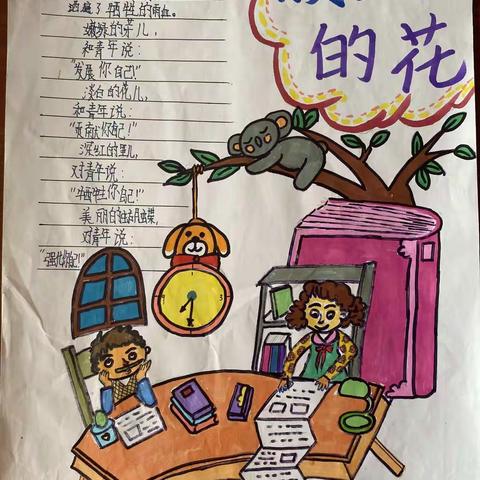 洒遍了牺牲的雨血。
嫩绿的芽儿，
和青年说：
"发展你自己！"
淡白的花儿，
和青年说：
"贡献你自己！"
深红的果儿
对青年说：
"牺牲你自己！"
美丽的蝴蝶，
对青年说：
自己！"
的花